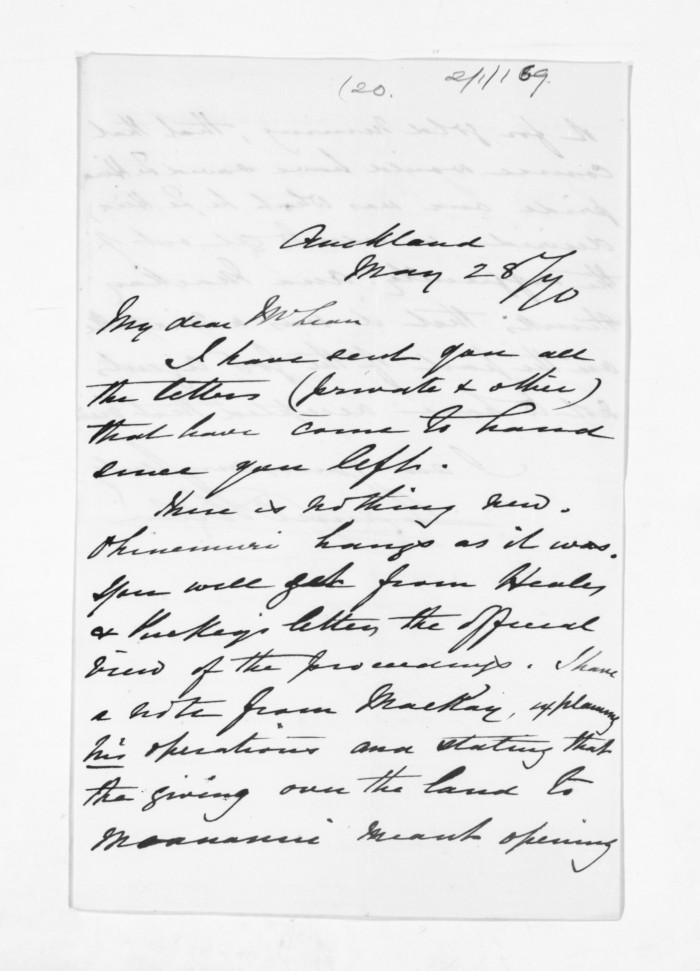 (20.
2/1/169.
Auckland
May 28/70
My dear McLean
I have sent you all
the letters (private & other)
that have come to hand
since you left.
There is nothing new.
Ohinemuri hangs as it was.
You will get from Heales
& Puckey's letters the official
view of the proceedings. I have
a note from MacKay, explaining
his operations and stating that
the giving over the land to
meant opening